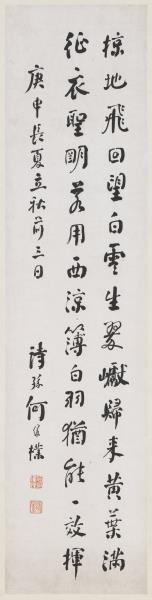 掠地飛回望白雲生翠巘歸來黃葉滿
征衣聖明若用西涼簿白羽猶能一效揮
庚申長夏立秋前三日
詩孫何維樸